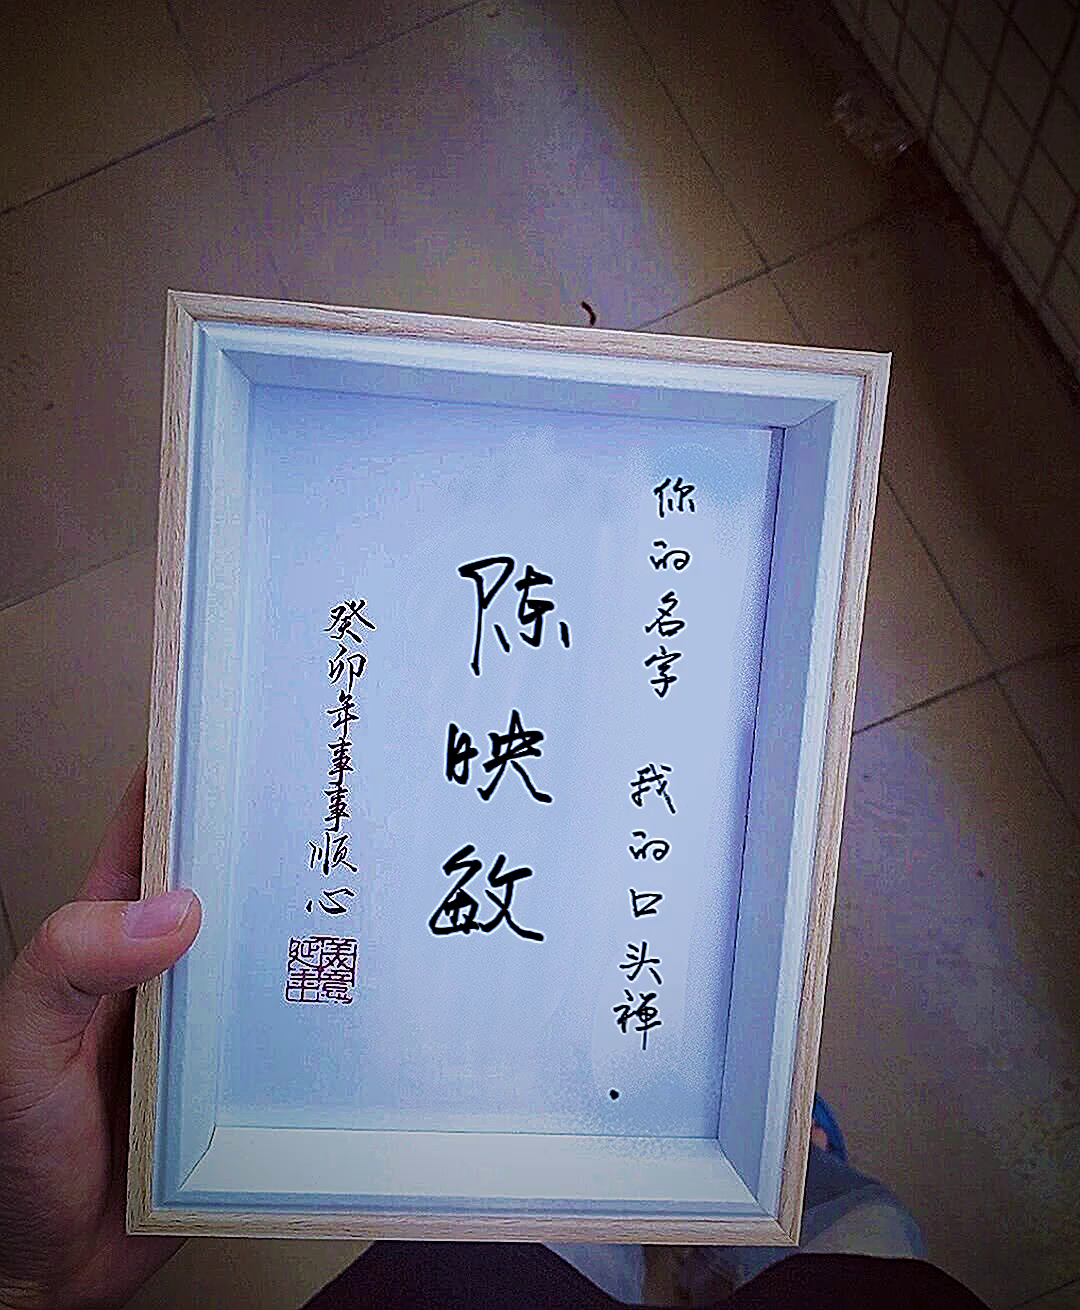 你的名字 我的口头禅.
陈映敏
癸卯年事事顺心
美意延年